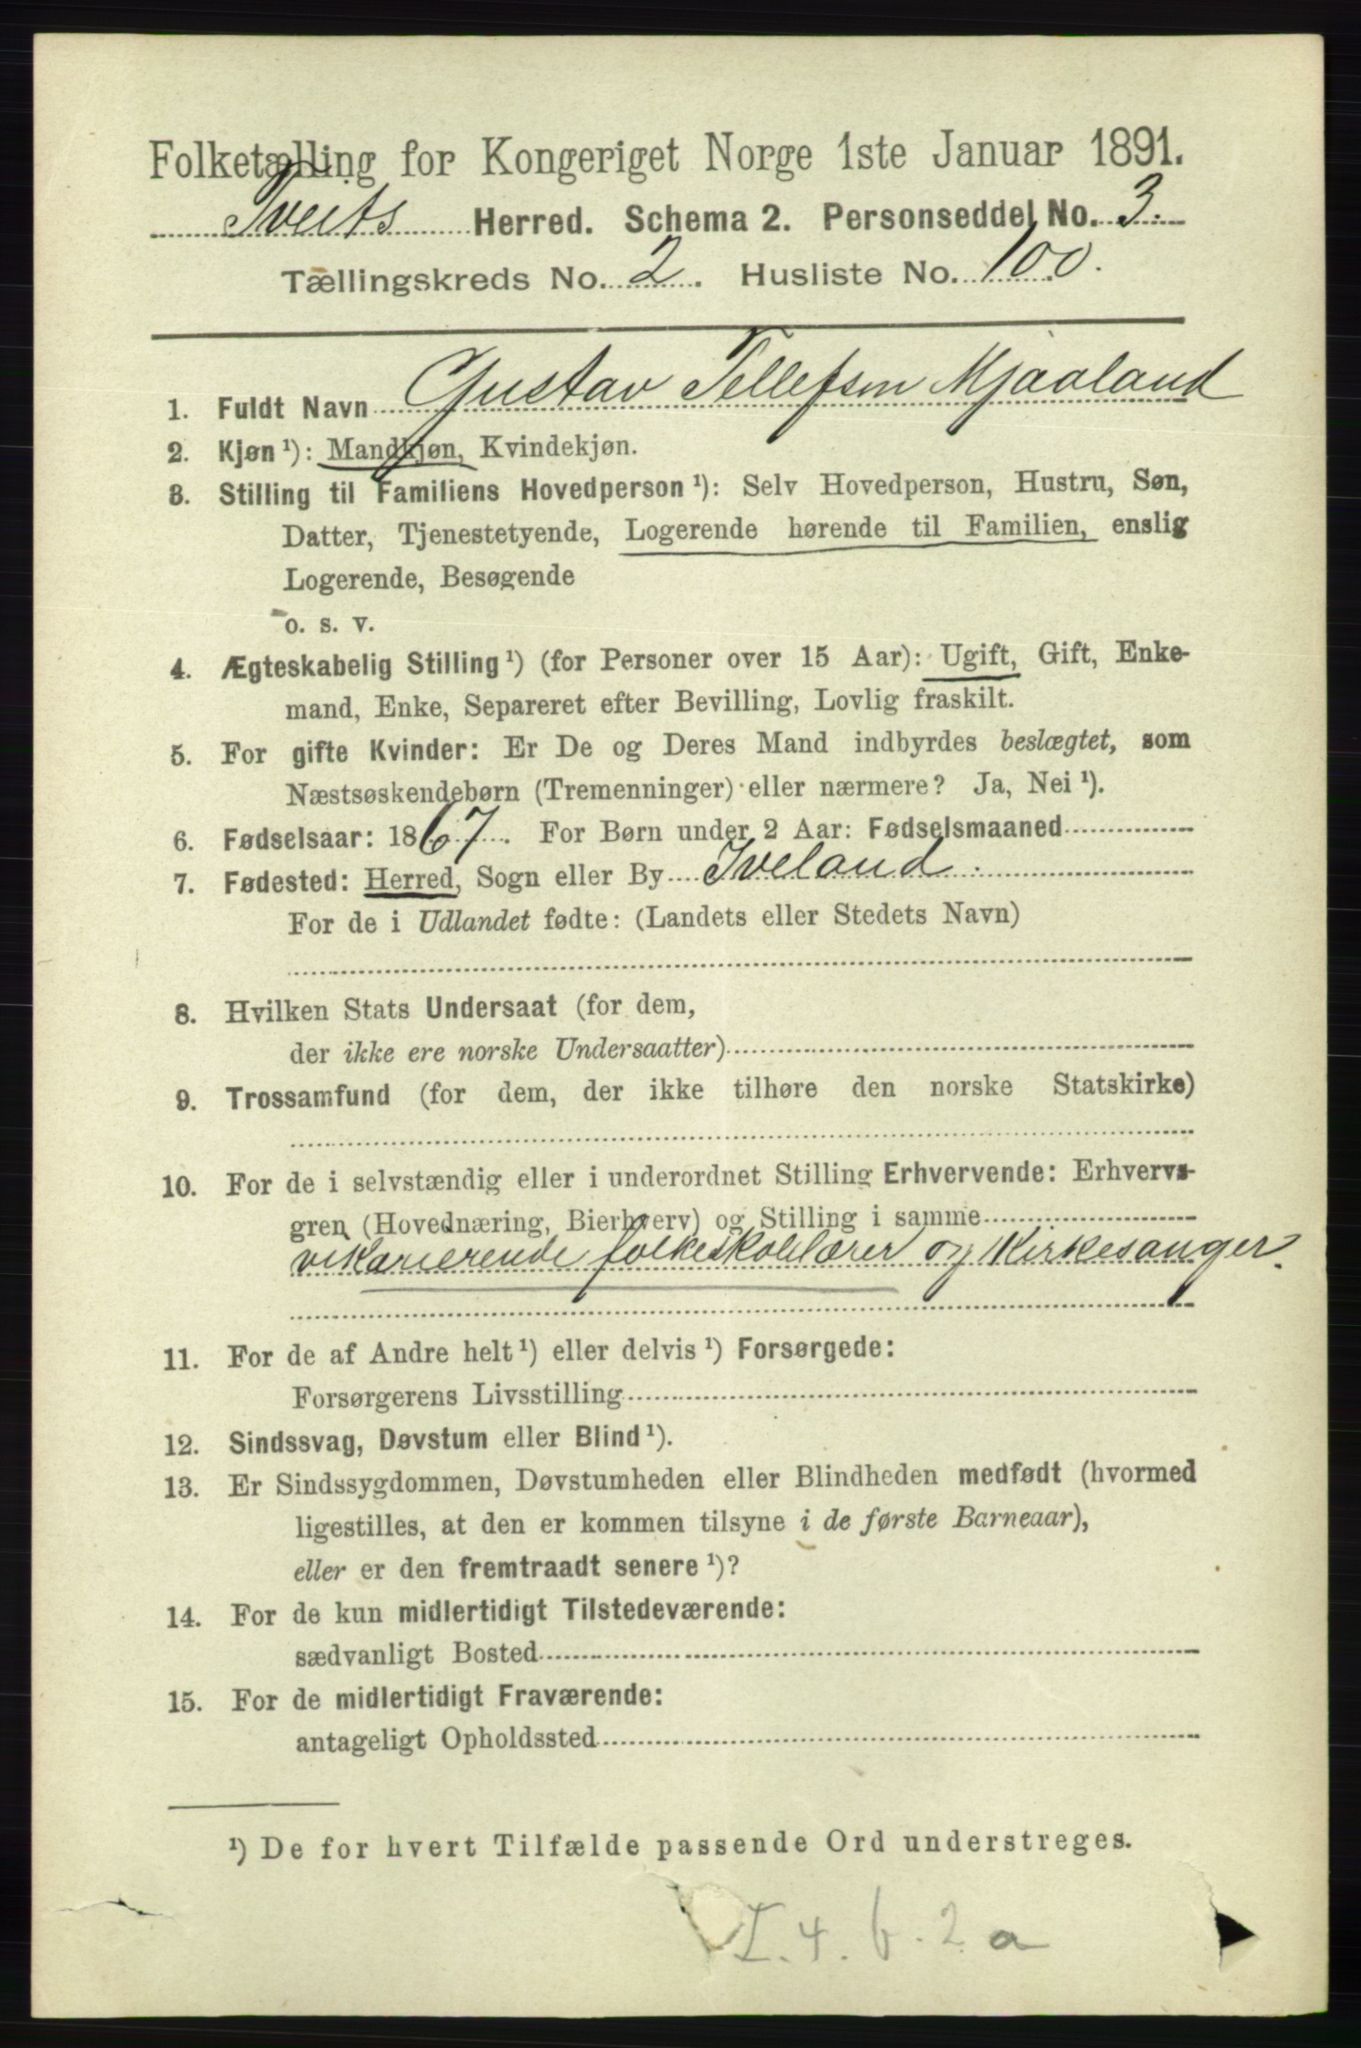 Folketælling for Kongeriget Norge 1ste Januar 1891.
Tveits Herred. Schema 2. Personseddel No. 3.
Tællingskreds No. 2. Husliste No. 100.
1. Fuldt Navn Gustav Tellefsen Mjaaland
2. Kjøn ¹): Mandkjøn, Kvindekjøn.
3. Stilling til Familiens Hovedperson ¹): Selv Hovedperson, Hustru, Søn,
Datter, Tjenestetyende, Logerende hørende til Familien, enslig
Logerende, Besøgende
o. s. v.
4. Ægteskabelig Stilling ¹) (for Personer over 15 Aar): Ugift, Gift, Enke-
mand, Enke, Separeret efter Bevilling, Lovlig fraskilt.
5. For gifte Kvinder: Er De og Deres Mand indbyrdes beslægtet, som
Næstsøskendebørn (Tremenninger) eller nærmere? Ja, Nei ¹).
6. Fødselsaar: 1867. For Børn under 2 Aar: Fødselsmaaned
7. Fødested: Herred, Sogn eller By Iveland.
For de i Udlandet fødte: (Landets eller Stedets Navn)
8. Hvilken Stats Undersaat (for dem,
der ikke ere norske Undersaatter)
9. Trossamfund (for dem, der ikke tilhøre den norske Statskirke)
10. For de i selvstændig eller i underordnet Stilling Erhvervende: Erhvervs-
gren (Hovednæring, Bierhverv) og Stilling i samme
vikarierende folkeskolelærer og Kirkesanger.
11. For de af Andre helt ¹) eller delvis ¹) Forsørgede:
Forsørgerens Livsstilling
12. Sindssvag, Døvstum eller Blind ¹).
13. Er Sindssygdommen, Døvstumheden eller Blindheden medfødt (hvormed
ligestilles, at den er kommen tilsyne i de første Barneaar),
eller er den fremtraadt senere ¹)?
14. For de kun midlertidigt Tilstedeværende:
sædvanligt Bosted
15. For de midlertidigt Fraværende:
antageligt Opholdssted
¹) De for hvert Tilfælde passende Ord understreges.
I. 4. b. 2 a